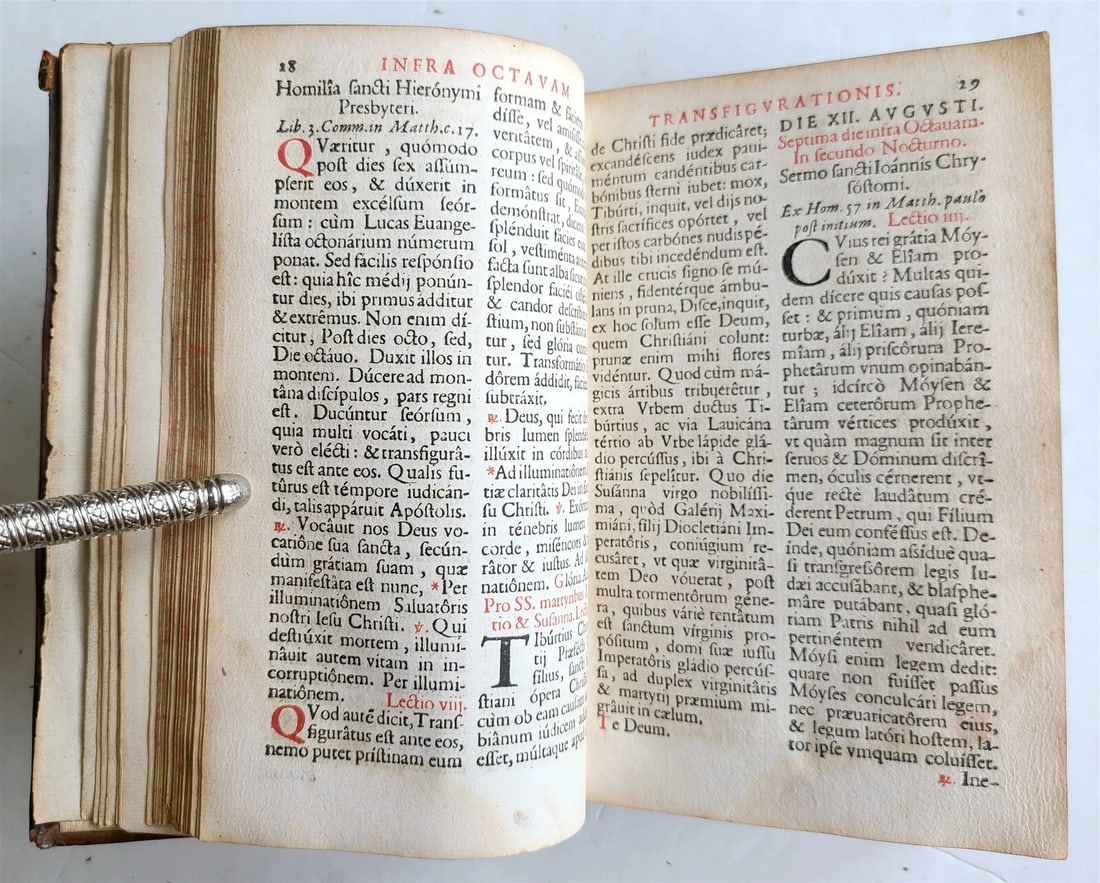 28
INFRA OCTAVAM
Homilîa sancti Hierónymi
Presbyteri.
Lib. 3. Comm. in Matth. c. 17.
QVæritur , quómodo
post dies sex assúm-
pserit eos, & dúxerit in
montem excélsum seór-
sum : cùm Lucas Euange-
lista octonárium númerum
ponat. Sed facilis respónsio
est : quia hîc médij ponún-
tur dies, ibi primus ádditur
& extrêmus. Non enim dí-
citur, Post dies octo, sed,
Die octáuo. Duxit illos in
montem. Dúcere ad mon-
tâna discípulos, pars regni
est. Ducúntur seórsum,
quia multi vocáti, pauci
verò elécti : & transfigurâ-
tus est ante eos. Qualis fu-
tûrus est témpore iudicán-
di, talis appáruit Apóstolis.
℟. Vocâuit nos Deus vo-
catiône sua sancta, secún-
dùm grátiam suam, quæ
manifestâta est nunc, *Per
illuminatiônem Saluatôris
nostri Iesu Christi. ℣. Qui
destrúxit mortem, illumi-
nâuit autem vitam in in-
corruptiônem. Per illumi-
natiônem.
Lectio viij.
QVod autẽ dicit, Trans-
figurâtus est ante eos,
nemo putet prístinam eum
formam & fáciem
disse, vel amisisse
veritâtem, &
corpus vel spirituâle
reum : sed quómodo
formâtus sit,
demónstrat, dicens
splénduit fácies
sol , vestiménta
facta sunt alba sicut
splendor faciéi
& candor describitur
stium, non substántia
tur, sed glória
tur. Transformátio
dôrem áddidit, fáciem
subtráxit.
℟. Deus, qui fecit de
bris lumen splendé
illúxit in córdibus
*Ad illuminatiônem
tiæ claritâtis Dei in
su Christi. ℣. Exórtum
in ténebris lumen
corde, miséricors &
râtor & iustus. Ad
natiônem. Glória
Pro SS. martyribus
tio & Susanna. Lectio
TIbúrtius
tij Præfécti
filius, sancti
stiani ópera
cùm ob eam causam
biânum iúdicem
esset, multáque apud
TRANSFIGVRATIONIS.
29
de Christi fide prædicâret;
excandéscens iudex paui-
méntum candéntibus car-
bónibus sterni iubet : mox,
Tibúrti, inquit, vel dijs no-
stris sacrífices opórtet , vel
per istos carbónes nudis pé-
dibus tibi incedéndum est.
At ille crucis signo se mú-
niens , fidentérque ámbu-
lans in pruna, Disce, inquit,
ex hoc solum esse Deum,
quem Christiáni colunt:
prunæ enim mihi flores
vidéntur. Quod cùm má-
gicis ártibus tribuerêtur ,
extra Vrbem ductus Ti-
búrtius , ac via Lauicána
tértio ab Vrbe lápide glá-
dio percússus, ibi à Chri-
stiánis sepelîtur. Quo die
Susánna virgo nobilíssi-
ma, quòd Galérij Maxi-
miáni, filij Diocletiáni Im-
peratôris , coniúgium re-
cusâret, vt quæ virginitâ-
tem Deo vóuerat, post
multa tormentôrum géne-
ra, quibus váriè tentâtum
est sanctum vírginis pro-
pósitum , domi suæ iussu
Imperatôris gládio percús-
sa, ad duplex virginitâtis
& martyrij præmium mi-
grâuit in cælum.
Te Deum.
DIE XII. AVGVSTI.
Septima die infra Octauam.
In secundo Nocturno.
Sermo sancti Ioánnis Chry-
sóstomi.
Ex Hom. 57 in Matth. paulò
post initium. Lectio iiij.
CVius rei grátia Móy-
sen & Elîam pro-
dúxit ? Multas qui-
dem dícere quis causas pos-
set : & primùm , quóniam
turbæ, álij Elîam, álij Iere-
mîam , álij priscôrum Pro-
phetârum vnum opinabán-
tur ; idcírcò Móysen &
Elîam ceterôrum Prophe-
târum vértices prodúxit ,
vt quàm magnum sit inter
seruos & Dóminum discrî-
men, óculis cérnerent , vt-
que rectè laudâtum cré-
derent Petrum , qui Fílium
Dei eum conféssus est. De-
inde, quóniam assíduè qua-
si transgressôrem legis Iu-
dæi accusábant, & blasphe-
mâre putábant, quasi gló-
riam Patris nihil ad eum
pertinéntem vendicâret.
Móysi enim legem dedit:
quare non fuísset passus
Móyses conculcári legem,
nec præuaricatôrem eius,
& legum latóri hostem, ta-
tor ipse vmquam coluísset.
℟. Ine-